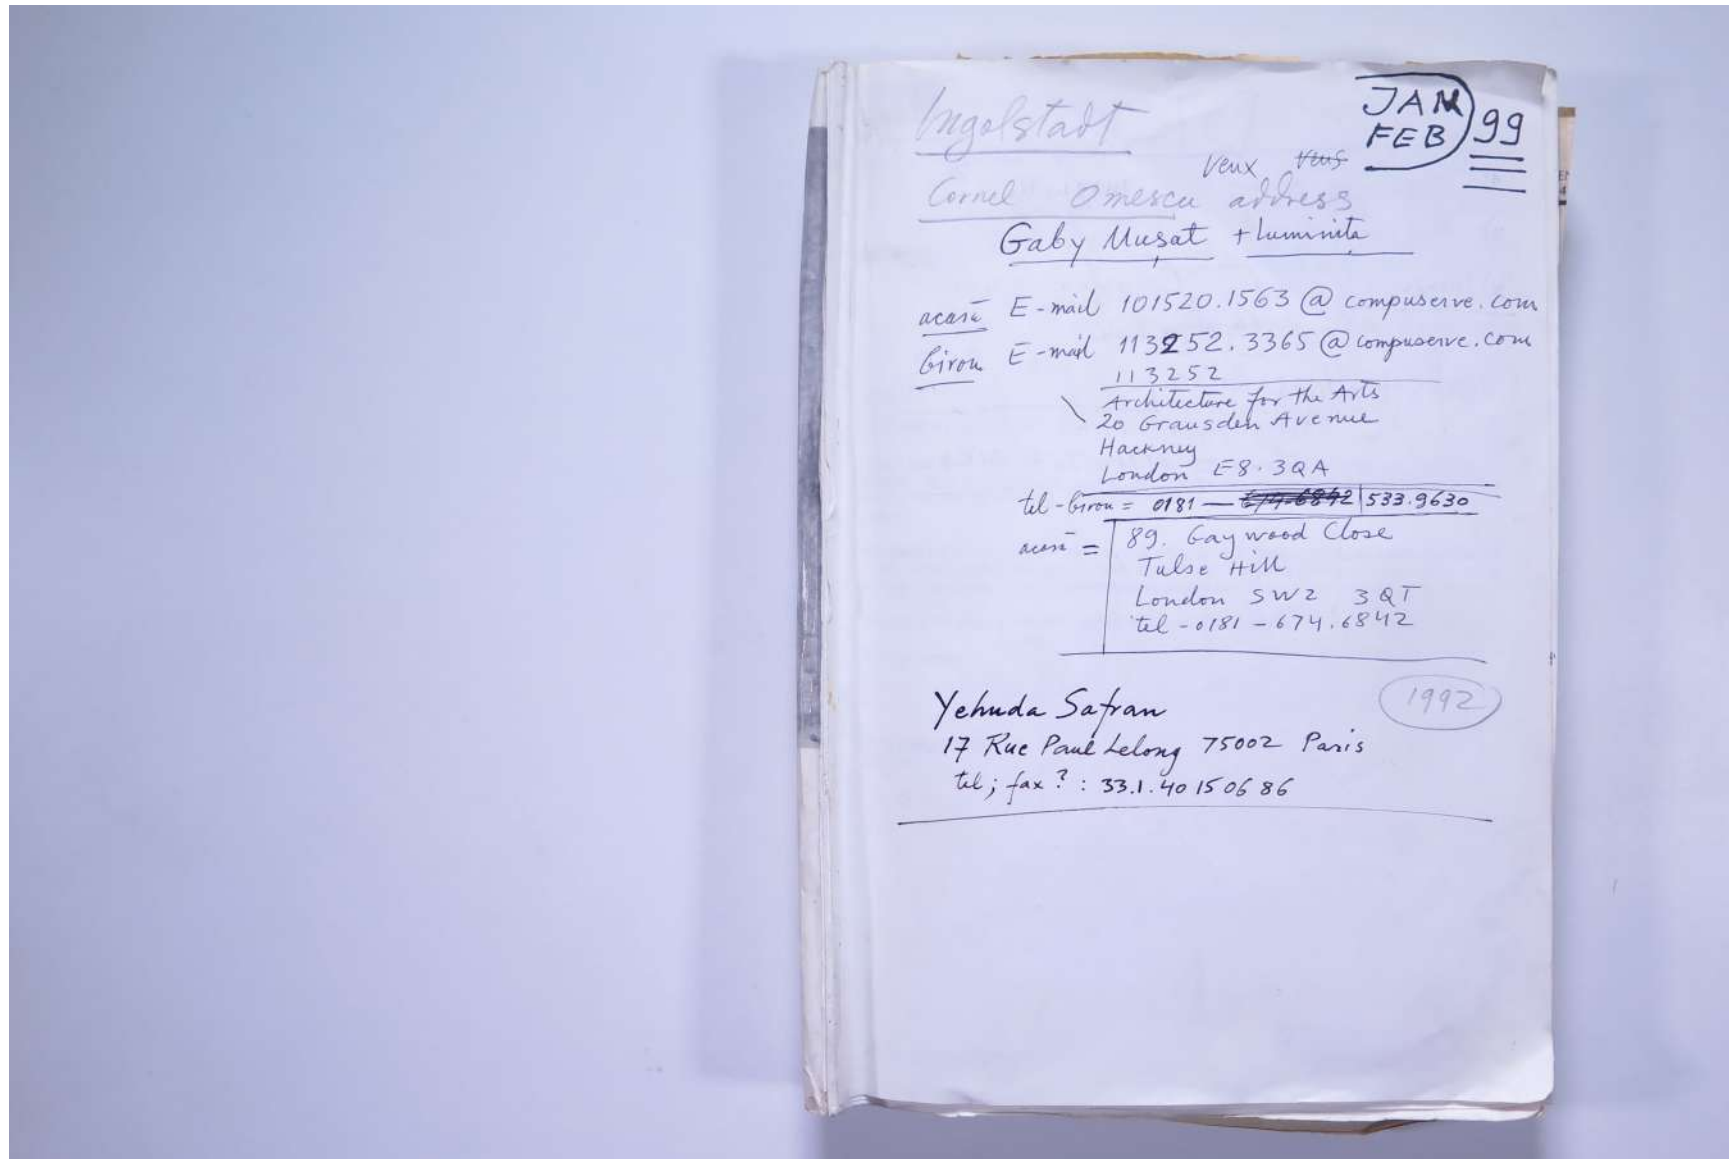 JAN
FEB 99
Ingolstadt
veux
Cornel Omescu address
Gaby Muşat + Luminita
acasă E-mail 101520.1563@compuserve.com
birou E-mail 113252.3365@compuserve.com
113252
Architecture for the Arts
20 Gransden Avenue
Hackney
London E8.3QA
tel-birou = 0181 — 674.6842 | 533.9630
acasă = 89. Gaywood Close
Tulse Hill
London SW2 3QT
tel-0181-674.6842
1992
Yehuda Safran
17 Rue Paul Lelong 75002 Paris
tel; fax? : 33.1.40 15 06 86